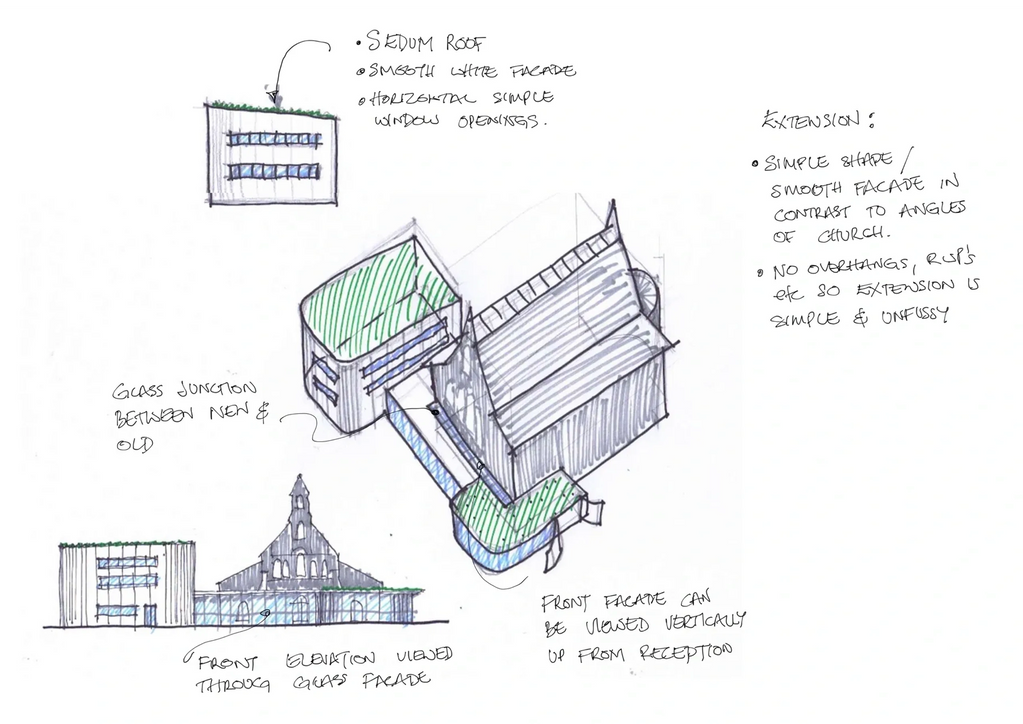 • SEDUM ROOF
• SMOOTH WHITE FACADE
• HORIZONTAL SIMPLE
WINDOW OPENINGS.
EXTENSION:
• SIMPLE SHAPE /
SMOOTH FACADE IN
CONTRAST TO ANGLES
OF CHURCH.
• NO OVERHANGS, RWP's
etc SO EXTENSION IS
SIMPLE & UNFUSSY
GLASS JUNCTION
BETWEEN NEW &
OLD
FRONT FACADE CAN
BE VIEWED VERTICALLY
UP FROM RECEPTION
FRONT ELEVATION VIEWED
THROUG GLASS FACADE